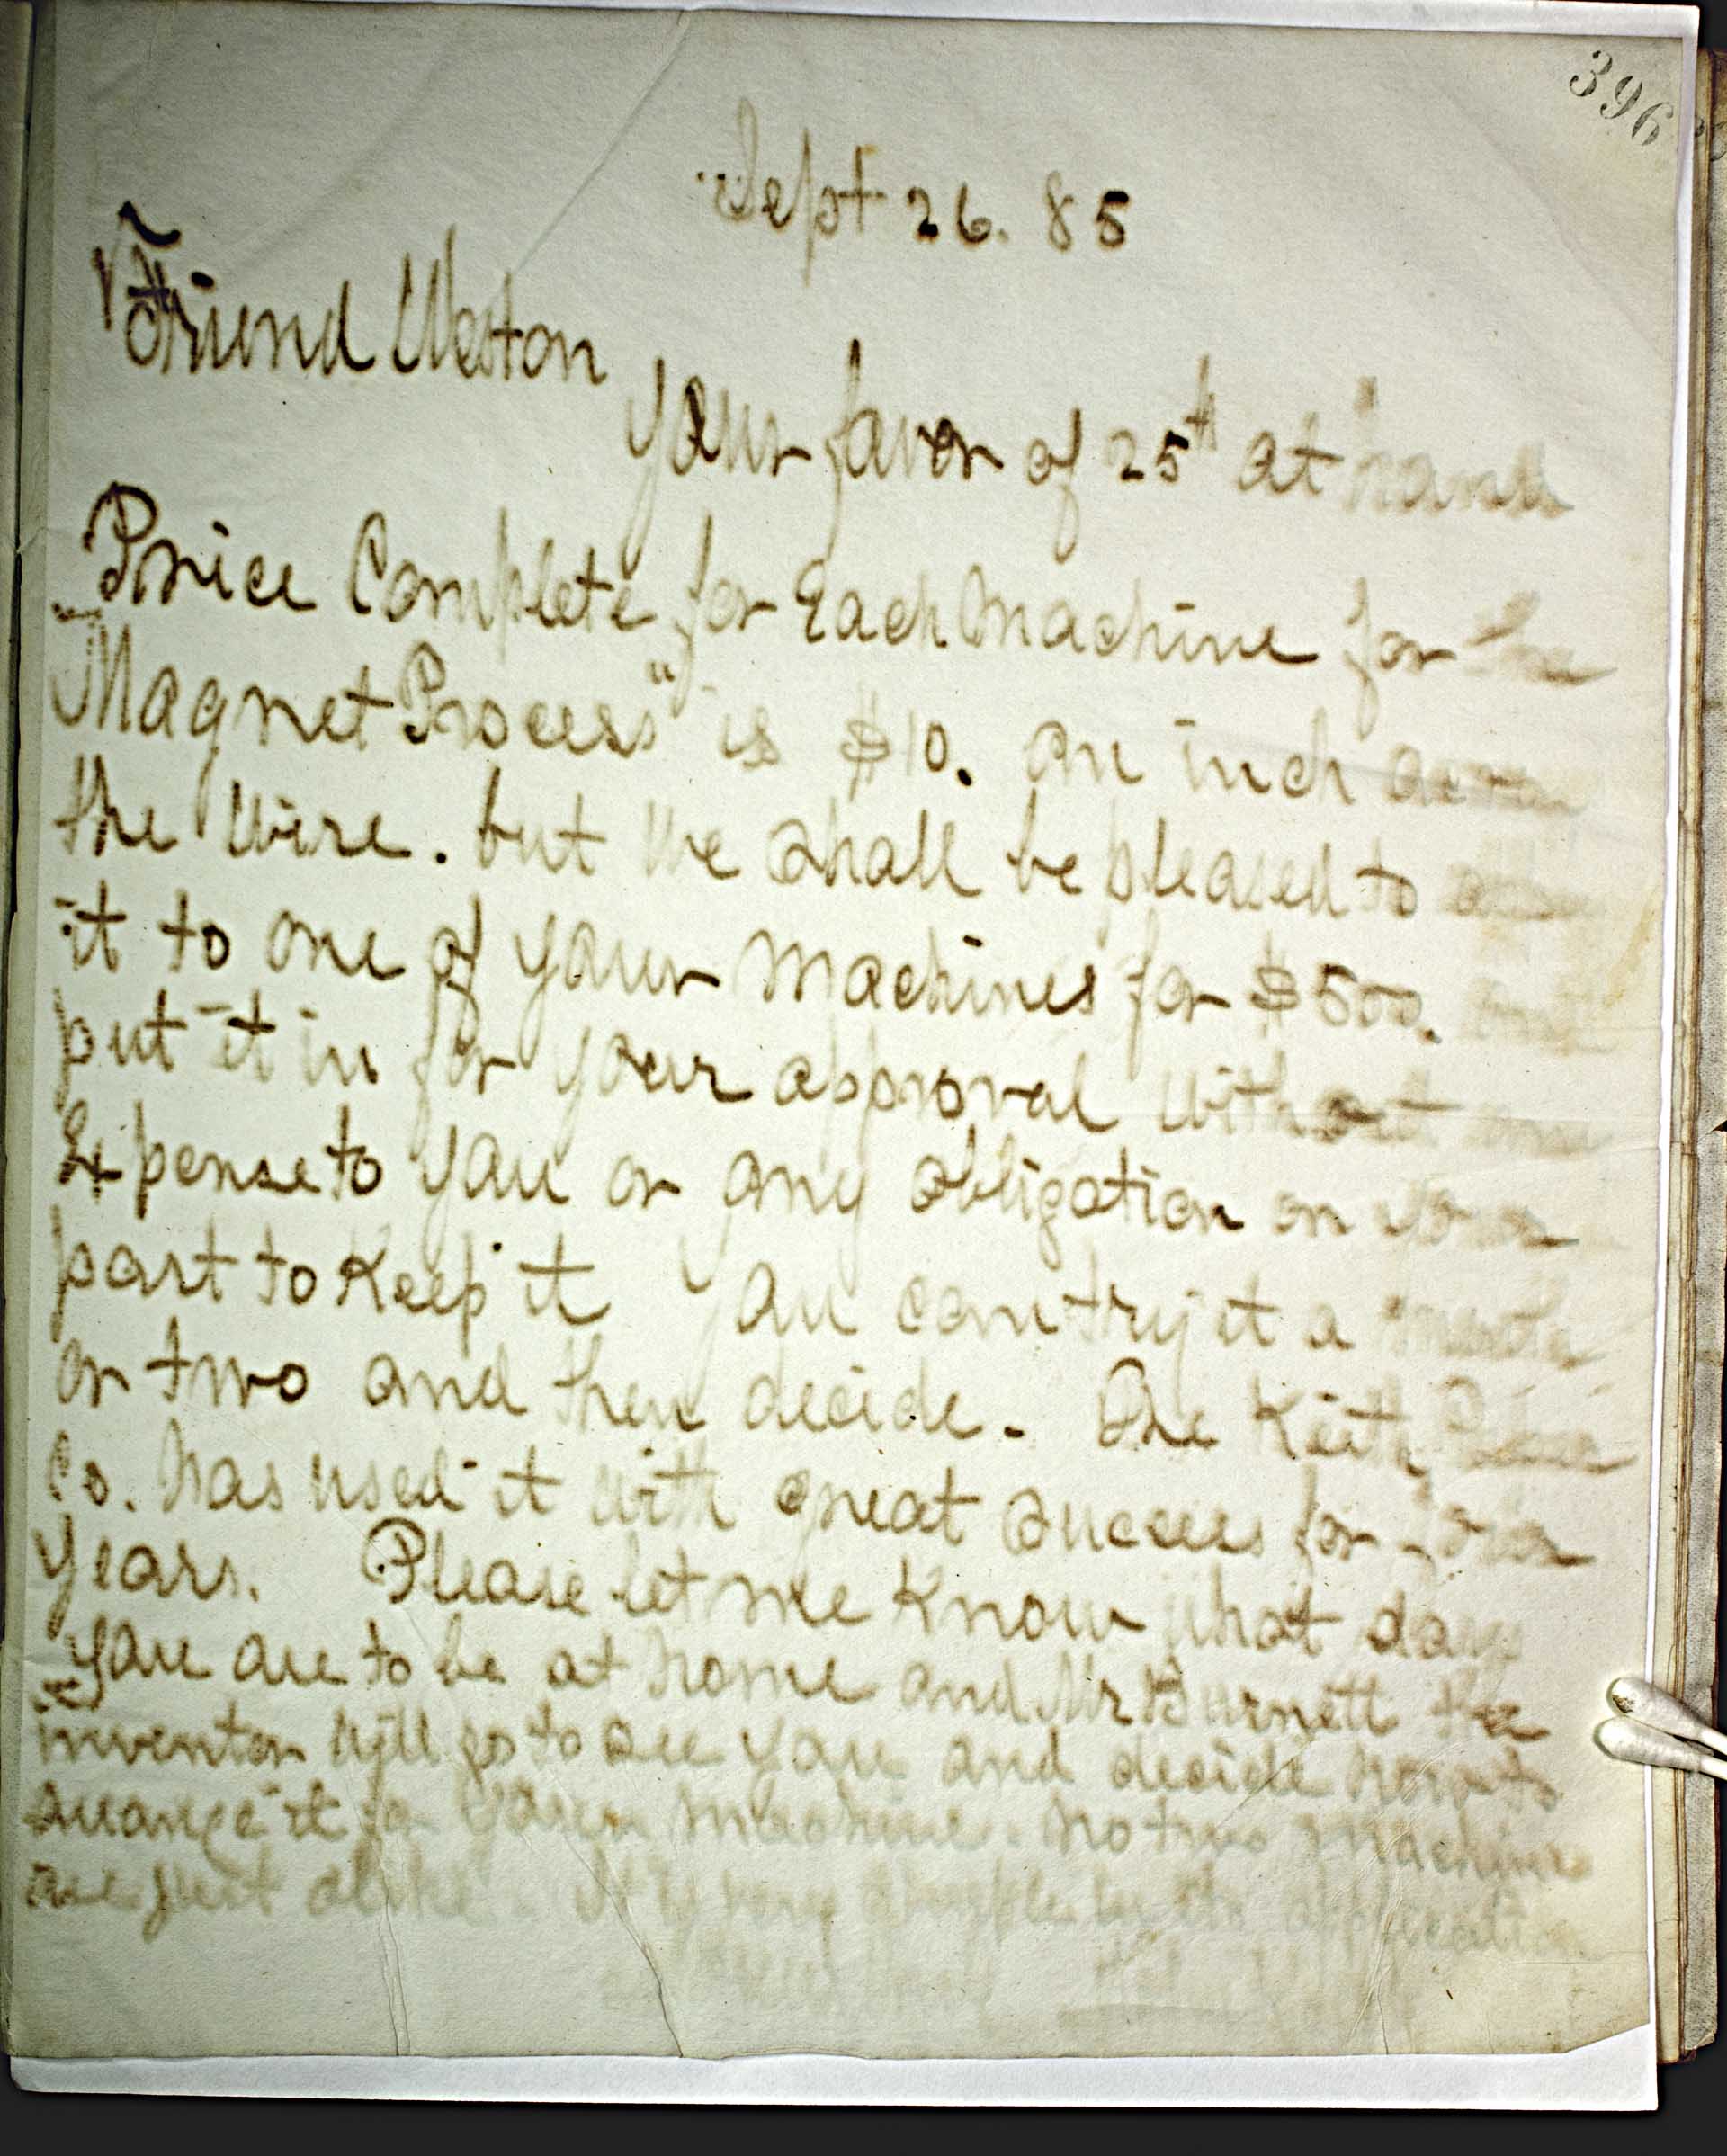 396
Sept 26. 85
Friend Weston
Your favor of 25th at hand
Price Complete for Each Machine for the
"Magnet Process" is $10. an inch across
the Wire. but We shall be pleased to
it to one of your Machines for $500.
put it in for your approval without any
Expense to you or any obligation on your
part to Keep it You can try it a month
or two and then decide. The Keith Paper
Co. has used it with great success for
years. Please let me Know what day
you are to be at home and Mr Burnett the
inventor will go to see you and decide how to
arrange it for your machine. No two machines
are just alike. It is very simple in its application